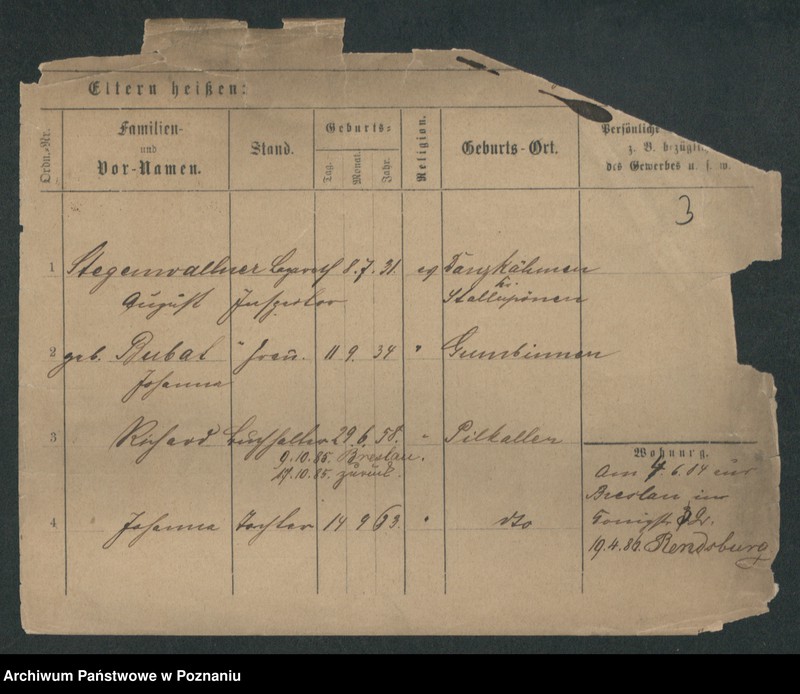 Eltern heißen:
Ordn.-Nr.
Familien-
und
Vor-Namen.
Stand.
Geburts-
Tag.
Monat.
Jahr.
Religion.
Geburts-Ort.
Persönliche
z. B. bezügli
des Gewerbes u. s. w.
3
1 Stegenwallner 8. 7. 31. ev Tanzkähmen
Kr.
August Inspektor Stallupönen
2 geb. Bubat " Frau. 11 9. 34 " Gumbinnen
Johanna
3 Richard Buchhalter 29. 6. 58. " Pilkallen
9.10.85. Breslau.
17.10.85. zurück.
Wohnung.
Am 4.6.84 aus
Breslau
19.4.86. Rendsburg
4 Johanna Tochter 14 9 63. " dto
Archiwum Państwowe w Poznaniu